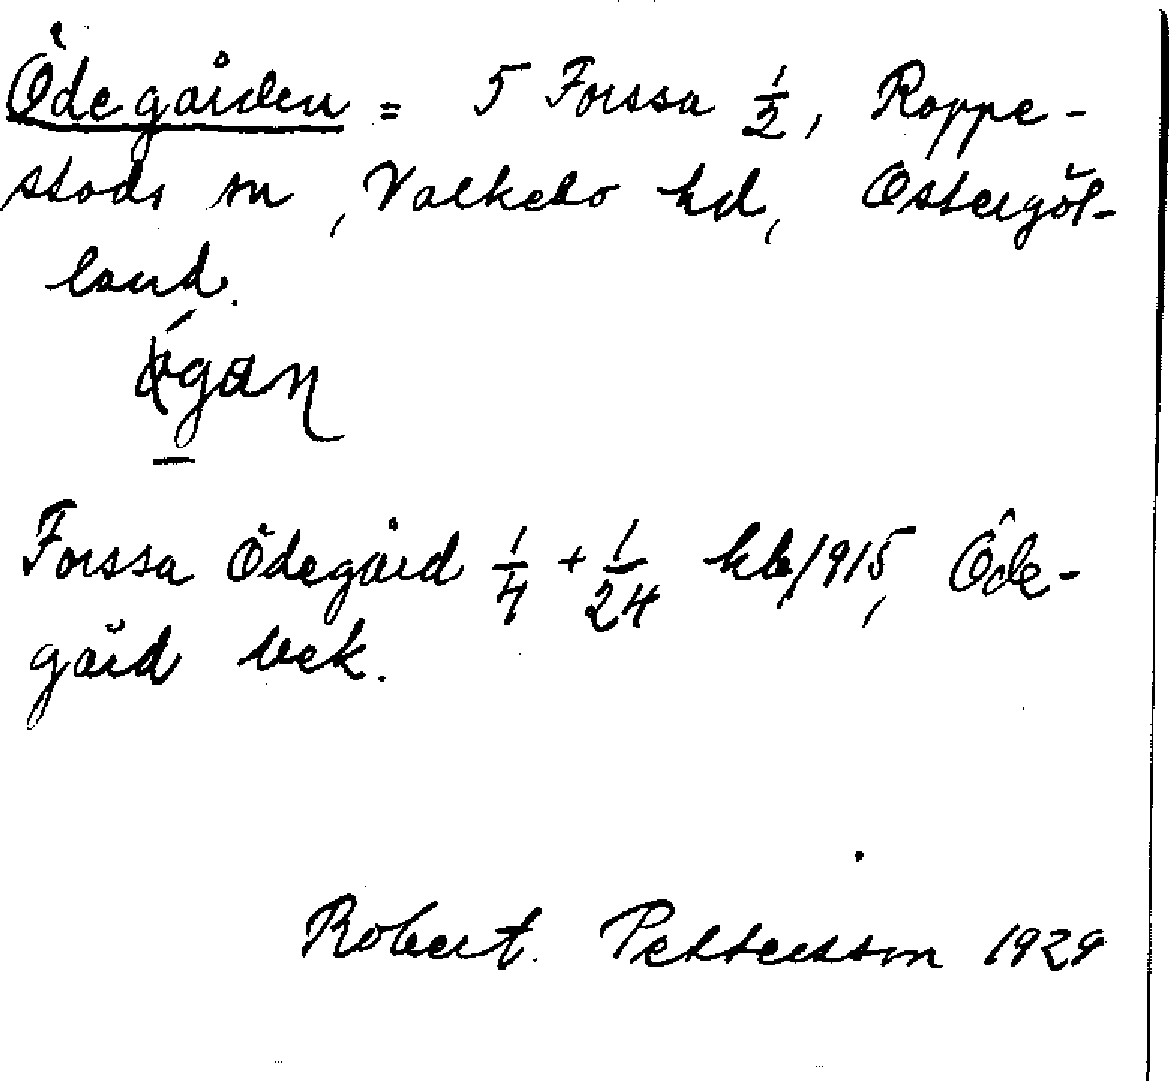 Ödegården = 5 Forssa 1/2, Rappe-
stads sn, Valkebo hd, Östergöt-
land.
Forssa Ödegård 1/4 + 1/24 kb/1915, Öde-
gård vek.
Robert Pettersson 1929